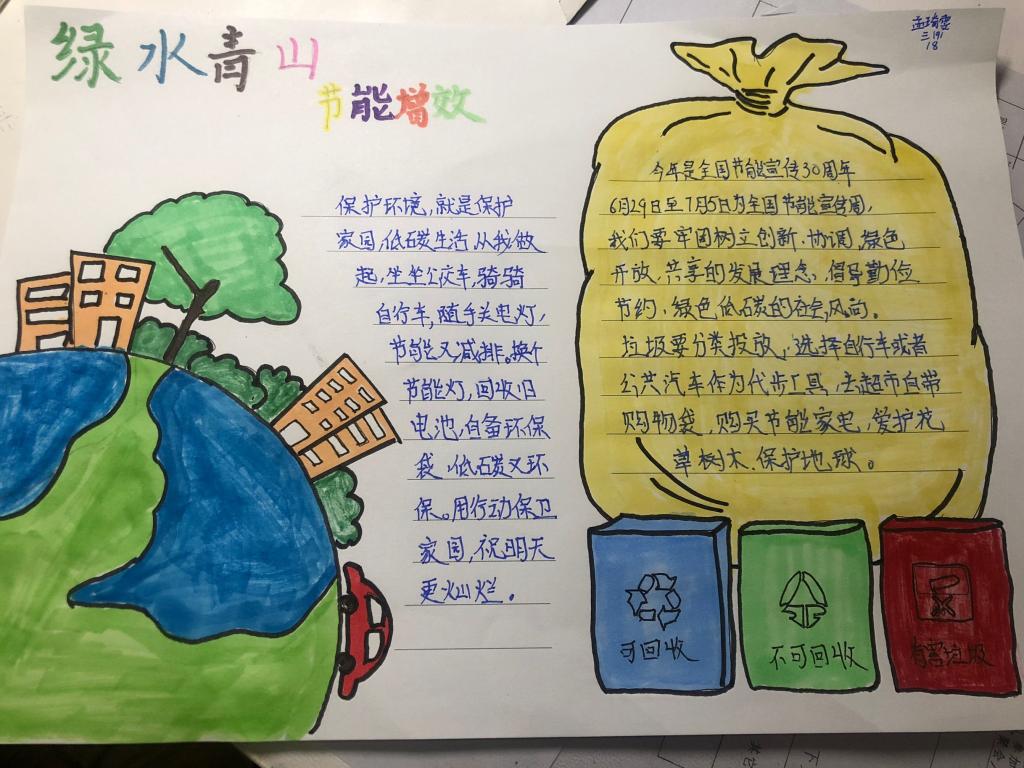 绿水青山
节能增效
三(9)
18
保护环境,就是保护
家园,低碳生活,从我做
起,坐坐公交车,骑骑
自行车,随手关电灯,
节能又减排。换个
节能灯,回收旧
电池,自备环保
袋,低碳又环
保。用行动保卫
家国,祝明天
更灿烂。
今年是全国节能宣传30周年
6月29日至7月5日为全国节能宣传周,
我们要牢固树立创新、协调、绿色
开放、共享的发展理念、倡导勤俭
节约、绿色低碳的社会风向。
垃圾要分类投放,选择自行车或者
公共汽车作为代步工具,去超市自带
购物袋,购买节能家电,爱护花
草树木、保护地球。
可回收
不可回收
有害垃圾